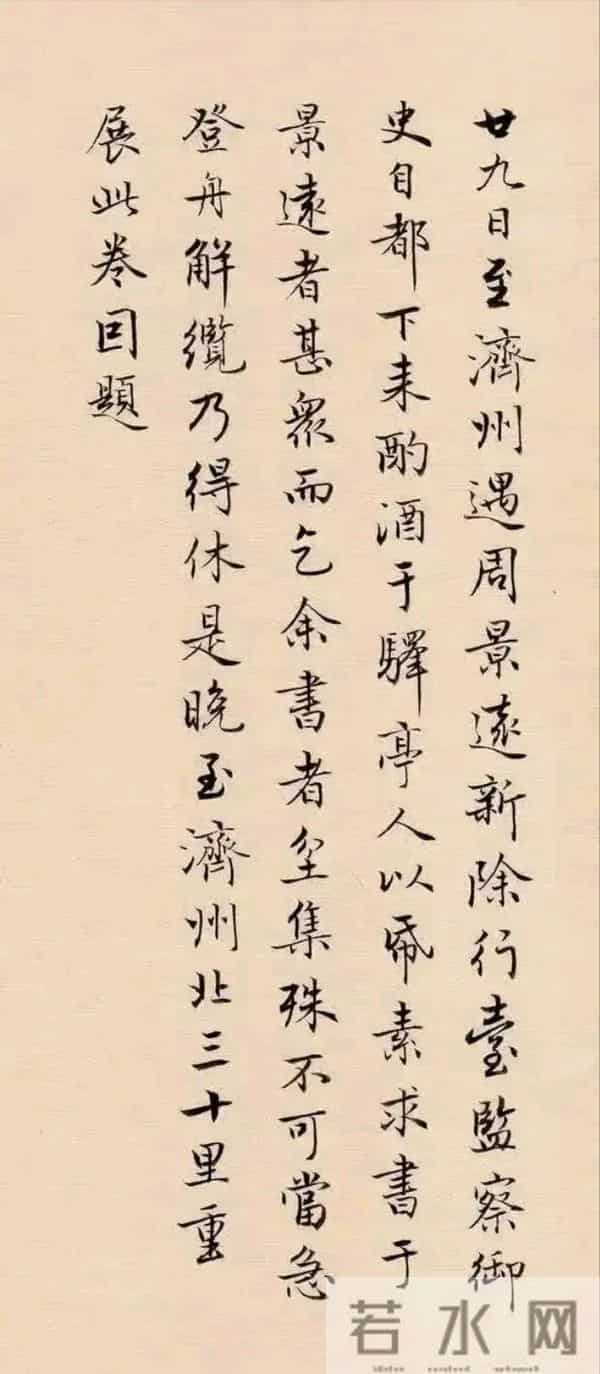 廿九日至濟州遇周景遠新除行臺監察御
史自都下来酌酒于驛亭人以帋素求書于
景遠者甚衆而乞余書者坌集殊不可當急
登舟解纜乃得休是晚至濟州北三十里重
展此卷囙題
若水网